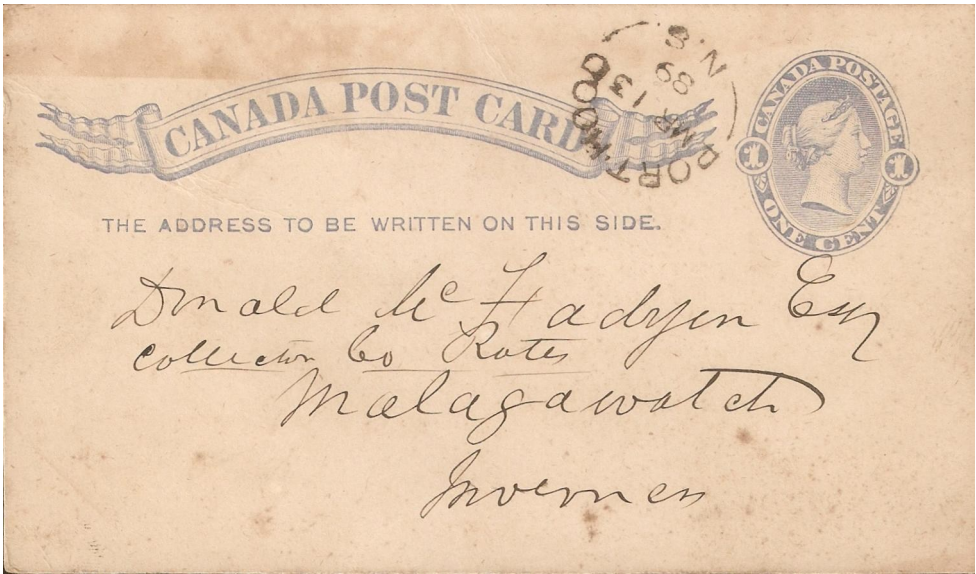 CANADA POST CARD
PORT HOOD
MR 13
89
N.S
CANADA POSTAGE
1 1
ONE CENT
THE ADDRESS TO BE WRITTEN ON THIS SIDE.
Donald McFadyen Esq
Collector Co Rates
Malagawatch
Inverness